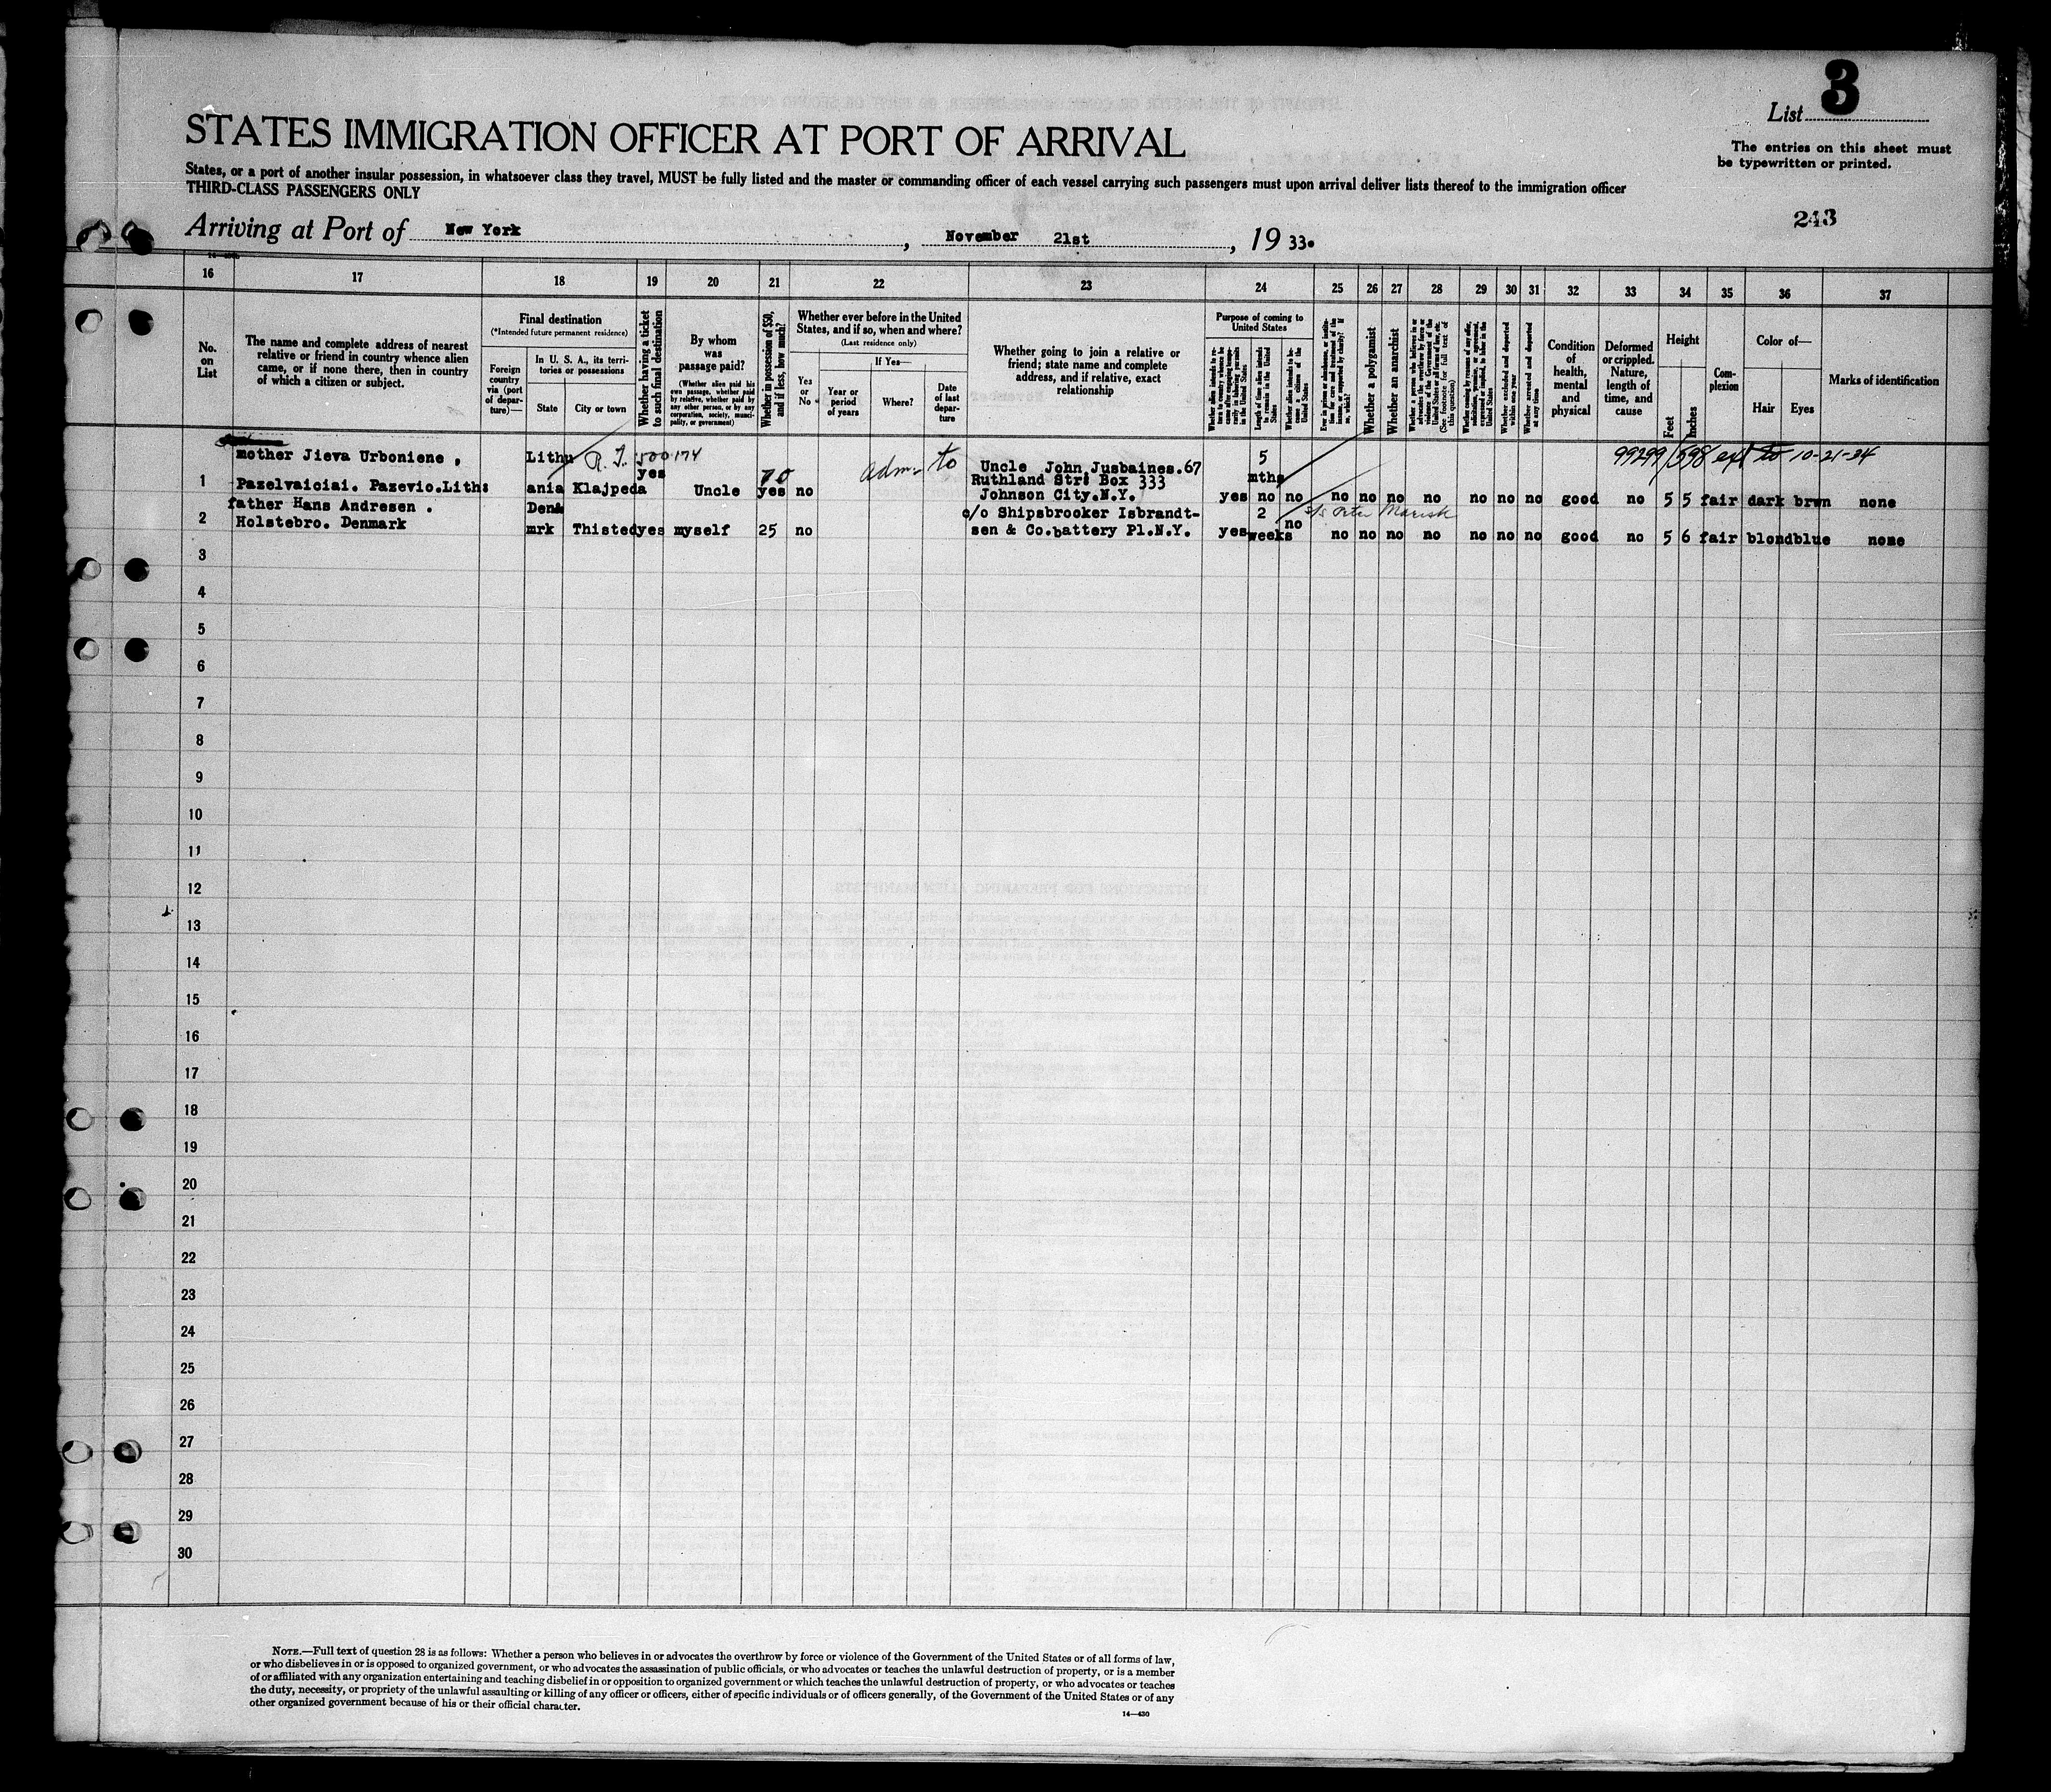 List 3
STATES IMMIGRATION OFFICER AT PORT OF ARRIVAL
The entries on this sheet must
be typewritten or printed.
States, or a port of another insular possession, in whatsoever class they travel, MUST be fully listed and the master or commanding officer of each vessel carrying such passengers must upon arrival deliver lists thereof to the immigration officer
THIRD-CLASS PASSENGERS ONLY
243
Arriving at Port of New York, November 21st, 1933.
16 17 18 19 20 21 22 23 24 25 26 27 28 29 30 31 32 33 34 35 36 37
No.
on
List
The name and complete address of nearest
relative or friend in country whence alien
came, or if none there, then in country
of which a citizen or subject.
Final destination
(*Intended future permanent residence)
Foreign
country
via (port
of depar-
ture)—
In U. S. A., its terri-
tories or possessions
State City or town
Whether having a ticket
to such final destination
By whom
was
passage paid?
(Whether alien paid his
own passage, whether paid
by relative, whether paid by
any other person, or by any
corporation, society, munici-
pality, or government)
Whether in possession of $50,
and if less, how much?
Whether ever before in the United
States, and if so, when and where?
(Last residence only)
Yes
or
No
If Yes—
Year or
period
of years
Where?
Date
of last
depar-
ture
Whether going to join a relative or
friend; state name and complete
address, and if relative, exact
relationship
Purpose of coming to
United States
Whether alien intends to re-
turn to country whence he
came after engaging tempo-
rarily in laboring pursuits
in the United States
Length of time alien intends
to remain in the United
States
Whether alien intends to be-
come a citizen of the
United States
Ever in prison or almshouse, or institu-
tion for care and treatment of the
insane, or supported by charity? If
so, which?
Whether a polygamist
Whether an anarchist
Whether a person who believes in or
advocates the overthrow by force or
violence of the Government of the
United States or all forms of law, etc.
(See footnote for full text of
this question)
Whether coming by reason of any offer,
solicitation, promise, or agreement,
expressed or implied, to labor in the
United States
Whether excluded and deported
within one year
Whether arrested and deported
at any time
Condition
of
health,
mental
and
physical
Deformed
or crippled.
Nature,
length of
time, and
cause
Height
Feet Inches
Com-
plexion
Color of—
Hair Eyes
Marks of identification
99299/598 ext to 10-21-34
mother Jieva Urboniene , Lithu R.T. 500174 yes 70 adm- to Uncle John Jusbaines.67 5
1 Pazelvaiciai. Pazevio.Lith: ania Klajpeda Uncle yes no Ruthland Str: Box 333 mths
Johnson City.N.Y. yes no no no no no no no no no good no 5 5 fair dark brwn none
father Hans Andresen . Den c/o Shipsbrooker Isbrandt- 2
2 Holstebro. Denmark mrk Thisted yes myself 25 no sen & Co.battery Pl.N.Y. yes weeks no no no no no no no no good no 5 6 fair blond blue none
3
4
5
6
7
8
9
10
11
12
13
14
15
16
17
18
19
20
21
22
23
24
25
26
27
28
29
30
NOTE.—Full text of question 28 is as follows: Whether a person who believes in or advocates the overthrow by force or violence of the Government of the United States or of all forms of law,
or who disbelieves in or is opposed to organized government, or who advocates the assassination of public officials, or who advocates or teaches the unlawful destruction of property, or is a member
of or affiliated with any organization entertaining and teaching disbelief in or opposition to organized government or which teaches the unlawful destruction of property, or who advocates or teaches
the duty, necessity, or propriety of the unlawful assaulting or killing of any officer or officers, either of specific individuals or of officers generally, of the Government of the United States or of any
other organized government because of his or their official character.
14—430